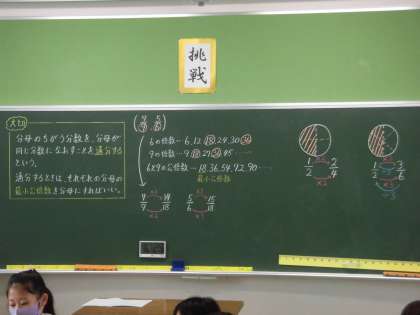 挑戦
大切
分母のちがう分数を、分母が
同じ分数になおすことを通分する
という。
通分するときは、それぞれの分母の
最小公倍数を分母にすればいい。
(4/9, 5/6)
6の倍数…6,12,18,24,30,36
9の倍数…9,18,27,36,45……
6と9の公倍数…18,36,54,72,90……
最小公倍数
4/9 8/18
5/6 15/18
×2 ×3
×2 ×3
1/2 2/4
×2
1/2 3/6
×3